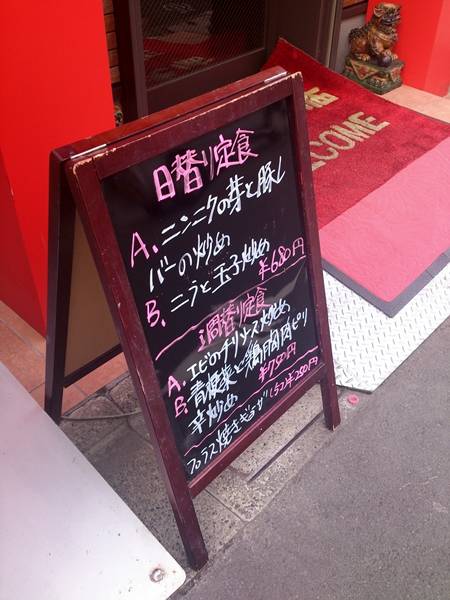 日替り定食
A. ニンニクの芽と豚レ
バーの炒め
B. ニラと玉子炒め
¥680円
週替り定食
A. エビのチリソース炒め
B. 青梗菜と鶏胸肉ピリ
辛炒め ¥750円
プラス焼きギョーザ(5コ)¥250円
WELCOME